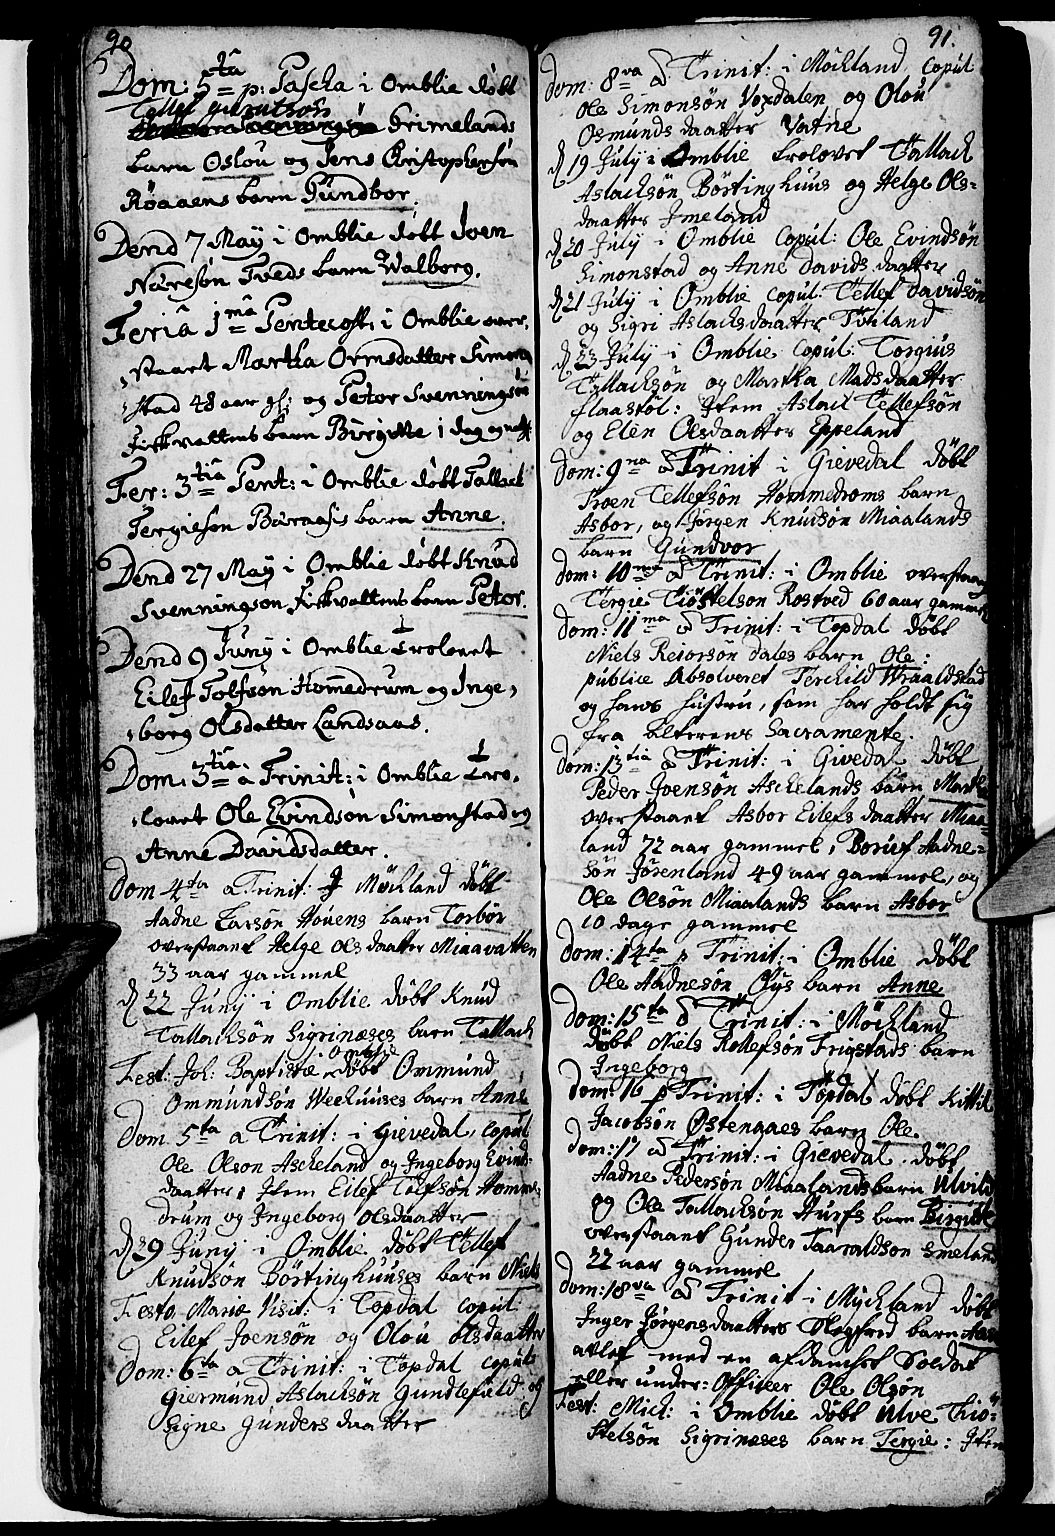 90
Dom: 5ta p: Pascha i Omblie døbt
Tellef Knutsøn
Grimelands
barn Oslou og Jens Christophersøn
Røaaens barn Gundbor.
Dend 7 May i Omblie døbt Joen
Næresøn Tveds barn Walborg.
Feria 1ma Pentecost: i Omblie over,
staaet Martha Ormsdatter Simon,
stad 48 aar gl: og Peter Svenningsøn
Fiskvattens barn Birgitte i dag og natt
Fer: 3tia Pent: i Omblie døbt Tallack
Tergiesøn Buraasis barn Anne.
Dend 27 May i Omblie døbt Knud
Svenningsøn Fiskvattens barn Peter.
Dend 9 Juny i Omblie trolovet
Eilef Tolfsøn Hommedrum og Inge,
borg Olsdatter Landsaas.
Dom: 3tia a Trinit: i Omblie tro,
lovet Ole Evindsøn Simonstad og
Anne Davidsdatter.
Dom 4ta a Trinit: J Møckland døbt
Aadne Larsøn Houens barn Torbor
overstaaet Helge Olsdaatter Miaavatten
33 aar gammel
d 22 Juny i Omblie døbt Knud
Tallacksøn Sigrinæses barn Tallack
Fest: Joh: Baptistæ i Omblie døbt Ommund
Ommundsøn Weehuuses barn Anne
Dom 5ta a Trinit: i Gievedal, Copul
Ole Olsøn Ascheland og Ingeborg Evinds
daatter, Item Eilef Tolfsøn Homme,
drum og Ingeborg Olsdaatter
d 29 Juny i Omblie døbt Tellef
Knudsøn Børtinghuuses barn Niels
Festo Mariæ Visit: i Topdal copul:
Eilef Joensøn og Olou Olsdaatter
Dom: 6ta a Trinit: i Topdal copul:
Giermund Aslachsøn Gundlefald og
Signe Gunders daatter
91.
dom: 8va a Trinit: i Mockland Copul
Ole Simonsøn Voxdalen og Olou
Osmunds daatter Vatne
d 19 July i Omblie trolovet Tallack
Aslacksøn Børtinghuus og Helge Ols-
daatter Imeland
d 20 July i Omblie Copul: Ole Evindsøn
Simonstad og Anne Davids daatter
d 21 July i Omblie Copul: Tellef Davidsøn
og Sigri Aslachsdaatter Tveiland
d 23 July i Omblie Copul: Torgius
Tallacksøn og Martha Madsdaatter
flaastøl: Item Aslack Tellefsøn
og Elen Olsdaatter Eppeland
dom: 9na a Trinit i Gievedal døbt
Troen Tellefsøn Hommedroms barn
Asbor, og Jørgen Knudsøn Miaalands
barn Gundvor
dom: 10ma a Trinit: i Omblie overstaaet
Tergie Tiøstelsøn Rostved 60 aar gammel
dom: 11ma a Trinit: i Topdal døbt
Niels Reiorsøn dales barn Ole:
publice Absolveret Terchild Wraaldstad
og hans hustru, som har holdt sig
fra alterens Sacramente.
dom: 13tia a Trinit: i Givedal døbt
Peder Joensøn Aschelands barn Marthe
overstaaet Asbor Eilefsdaatter Miaa-
land 72 aar gammel, Boruf Aadne-
søn Jørenland 49 aar gammel, og
Ole Olsøn Miaalands barn Asbor
10 dage gammel
dom: 14ta p Trinit: i Omblie døbt
Ole Aadnesøn Øys barn Anne
dom: 15ta a Trinit: i Møckland
døbt Niels Rollefsøn Frigstads barn
Ingeborg
dom: 16 p Trinit: i Topdal døbt Kittil
Jacobsøn Østenaaes barn Ole.
dom: 17 a Trinit: i Gievedal døbt
Aadne Pedersøn Miaalands barn Ulvild
og Ole Tallacksøn Hurfs barn Birgitte
overstaaet Gunder Taaraldsøn Smeland
22 aar gammel
dom: 18va a Trinit i Myckland døbt
Inger Jørgensdaatters Slegfred barn
avlet med en afdancket Soldat
eller under: Officer Ole Olsøn
Fest: Mich: i Omblie døbt Ulve Tiø-
stelsøn Sigrinæses barn Tergie: Item